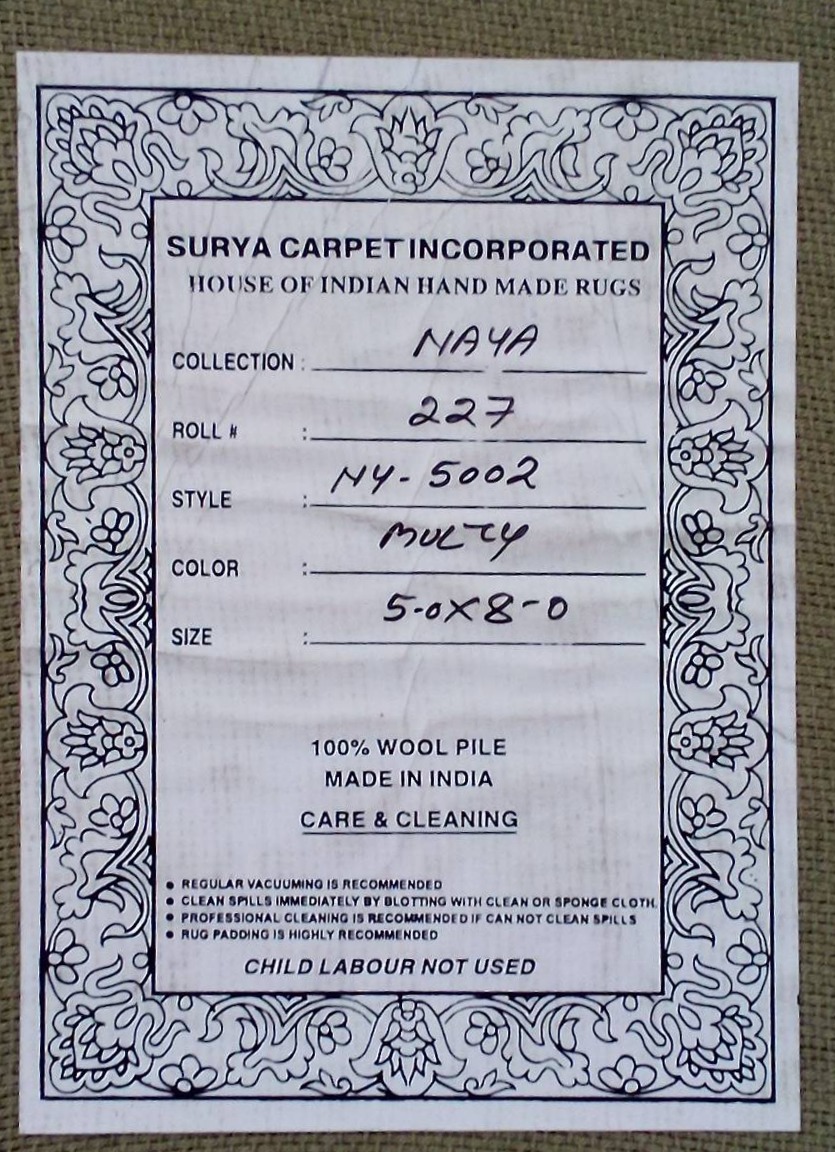 SURYA CARPET INCORPORATED
HOUSE OF INDIAN HAND MADE RUGS
COLLECTION : NAYA
ROLL # : 227
STYLE : NY-5002
COLOR : MULTY
SIZE : 5-0X8-0
100% WOOL PILE
MADE IN INDIA
CARE & CLEANING
• REGULAR VACUUMING IS RECOMMENDED
• CLEAN SPILLS IMMEDIATELY BY BLOTTING WITH CLEAN OR SPONGE CLOTH.
• PROFESSIONAL CLEANING IS RECOMMENDED IF CAN NOT CLEAN SPILLS
• RUG PADDING IS HIGHLY RECOMMENDED
CHILD LABOUR NOT USED